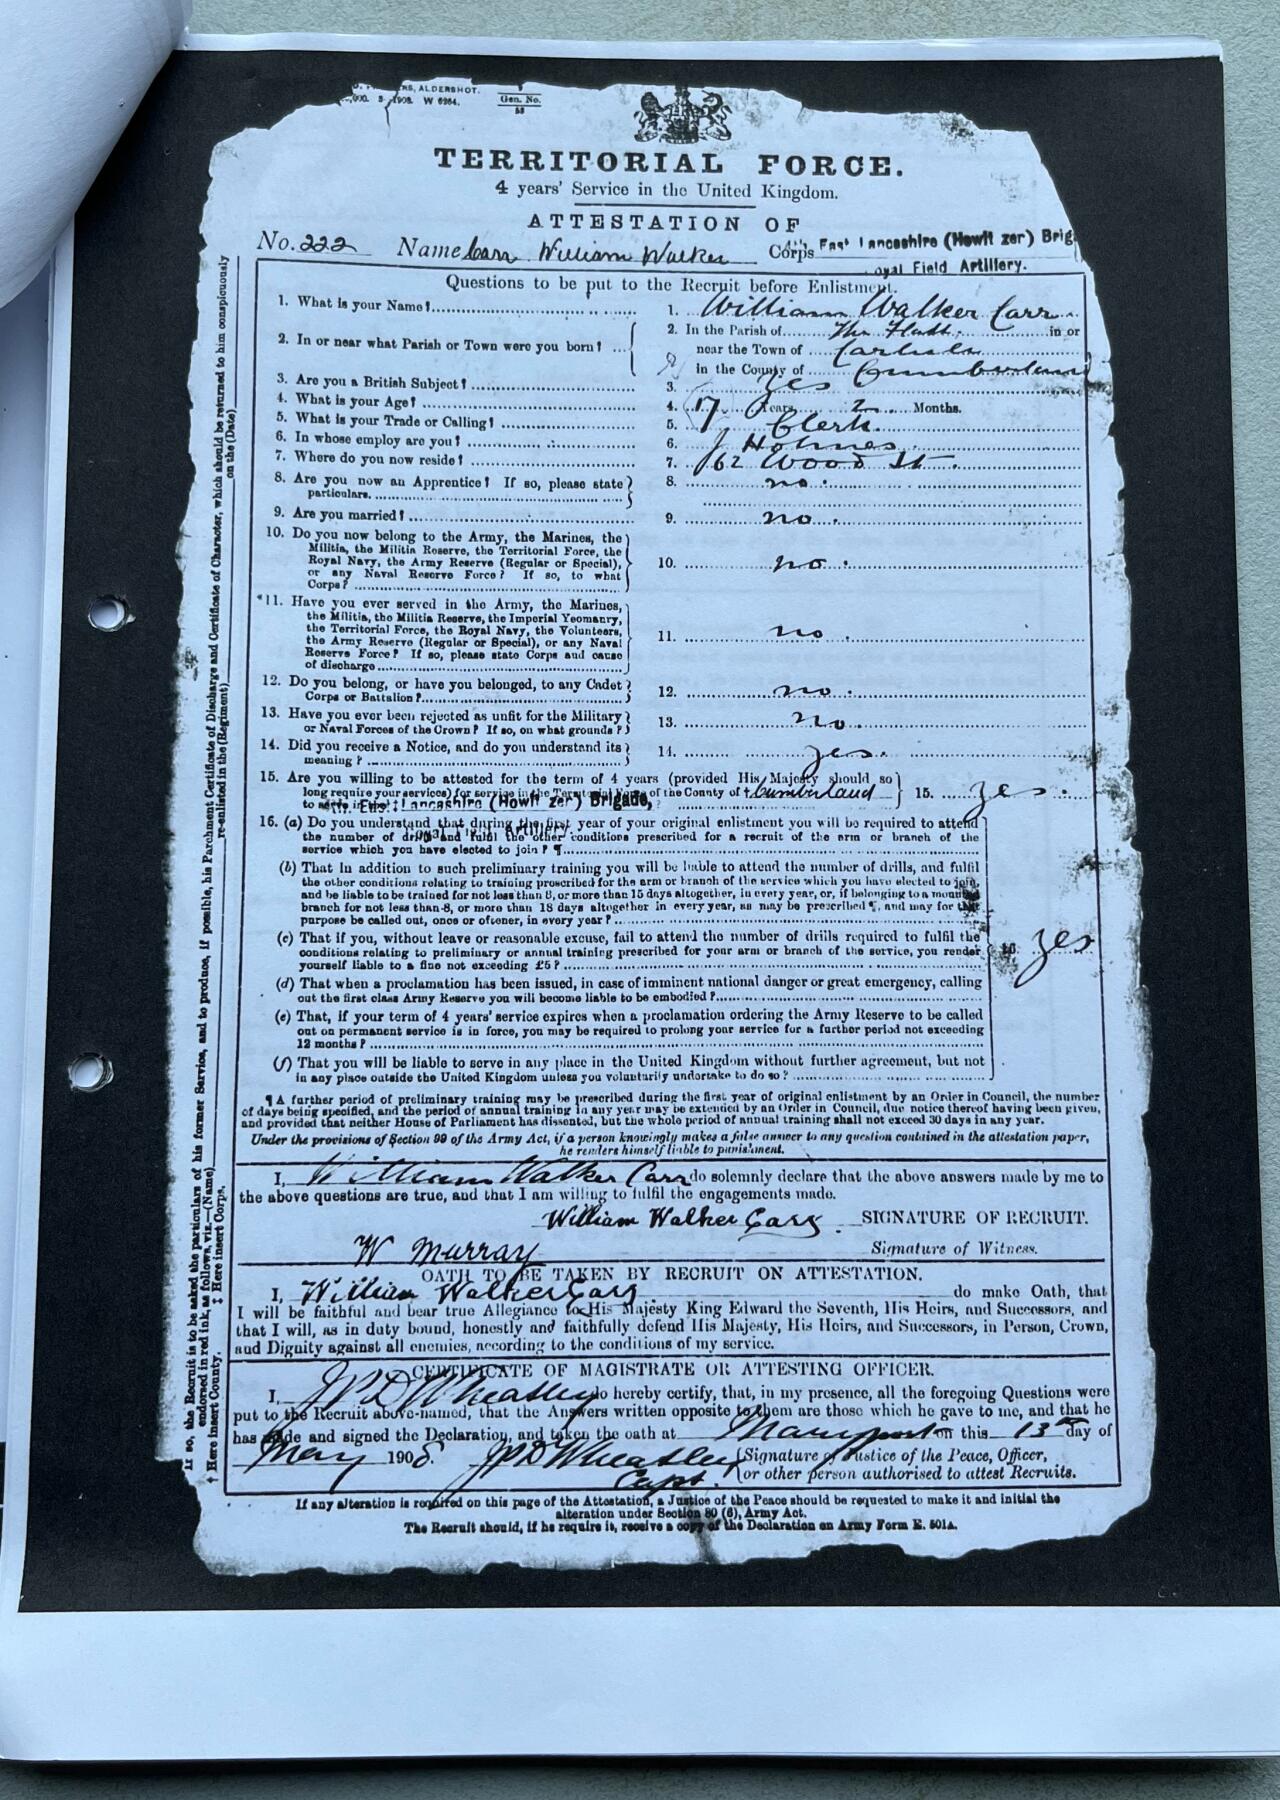 RS, ALDERSHOT.
,000. 5-1908. W 6264.
Gen. No.
TERRITORIAL FORCE.
4 years' Service in the United Kingdom.
ATTESTATION OF
No. 222 Name Carr William Walker Corps East Lancashire (Howitzer) Brig
oyal Field Artillery.
Questions to be put to the Recruit before Enlistment.
1. What is your Name? 1. William Walker Carr
2. In or near what Parish or Town were you born? 2. In the Parish of The in or
near the Town of Carlisle
in the County of Cumberland
3. Are you a British Subject? 3. yes
4. What is your Age? 4. 17 Years 2 Months.
5. What is your Trade or Calling? 5. Clerk.
6. In whose employ are you? 6. J Holmes
7. Where do you now reside? 7. 62 Wood St.
8. Are you now an Apprentice? If so, please state 8. no.
particulars.
9. Are you married? 9. no.
10. Do you now belong to the Army, the Marines, the
Militia, the Militia Reserve, the Territorial Force, the
Royal Navy, the Army Reserve (Regular or Special), 10. no.
or any Naval Reserve Force? If so, to what
Corps?
*11. Have you ever served in the Army, the Marines,
the Militia, the Militia Reserve, the Imperial Yeomanry,
the Territorial Force, the Royal Navy, the Volunteers, 11. no.
the Army Reserve (Regular or Special), or any Naval
Reserve Force? If so, please state Corps and cause
of discharge
12. Do you belong, or have you belonged, to any Cadet 12. no.
Corps or Battalion?
13. Have you ever been rejected as unfit for the Military 13. no.
or Naval Forces of the Crown? If so, on what grounds?
14. Did you receive a Notice, and do you understand its 14. yes.
meaning?
15. Are you willing to be attested for the term of 4 years (provided His Majesty should so
long require your services) for service in the Territorial Force of the County of † Cumberland 15. yes.
to serve in East Lancashire (Howitzer) Brigade,
oyal Field Artillery.
16. (a) Do you understand that during the first year of your original enlistment you will be required to attend
the number of drills and fulfil the other conditions prescribed for a recruit of the arm or branch of the
service which you have elected to join? ¶
(b) That in addition to such preliminary training you will be liable to attend the number of drills, and fulfil
the other conditions relating to training prescribed for the arm or branch of the service which you have elected to join,
and be liable to be trained for not less than 8, or more than 15 days altogether, in every year, or, if belonging to a mounted
branch for not less than 8, or more than 18 days altogether in every year, as may be prescribed ¶, and may for that
purpose be called out, once or oftener, in every year?
(c) That if you, without leave or reasonable excuse, fail to attend the number of drills required to fulfil the
conditions relating to preliminary or annual training prescribed for your arm or branch of the service, you render 16. yes
yourself liable to a fine not exceeding £5?
(d) That when a proclamation has been issued, in case of imminent national danger or great emergency, calling
out the first class Army Reserve you will become liable to be embodied?
(e) That, if your term of 4 years' service expires when a proclamation ordering the Army Reserve to be called
out on permanent service is in force, you may be required to prolong your service for a further period not exceeding
12 months?
(f) That you will be liable to serve in any place in the United Kingdom without further agreement, but not
in any place outside the United Kingdom unless you voluntarily undertake to do so?
¶ A further period of preliminary training may be prescribed during the first year of original enlistment by an Order in Council, the number
of days being specified, and the period of annual training in any year may be extended by an Order in Council, due notice thereof having been given,
and provided that neither House of Parliament has dissented, but the whole period of annual training shall not exceed 30 days in any year.
Under the provisions of Section 99 of the Army Act, if a person knowingly makes a false answer to any question contained in the attestation paper,
he renders himself liable to punishment.
I, William Walker Carr do solemnly declare that the above answers made by me to
the above questions are true, and that I am willing to fulfil the engagements made.
William Walker Carr SIGNATURE OF RECRUIT.
W Murray Signature of Witness.
OATH TO BE TAKEN BY RECRUIT ON ATTESTATION.
I, William Walker Carr do make Oath, that
I will be faithful and bear true Allegiance to His Majesty King Edward the Seventh, His Heirs, and Successors, and
that I will, as in duty bound, honestly and faithfully defend His Majesty, His Heirs, and Successors, in Person, Crown,
and Dignity against all enemies, according to the conditions of my service.
CERTIFICATE OF MAGISTRATE OR ATTESTING OFFICER.
I, JPD Wheatley do hereby certify, that, in my presence, all the foregoing Questions were
put to the Recruit above-named, that the Answers written opposite to them are those which he gave to me, and that he
has made and signed the Declaration, and taken the oath at Maryport on this 13th day of
May 1908. JPD Wheatley Signature of Justice of the Peace, Officer,
Capt. or other person authorised to attest Recruits.
If any alteration is required on this page of the Attestation, a Justice of the Peace should be requested to make it and initial the
alteration under Section 80 (6), Army Act.
The Recruit should, if he require it, receive a copy of the Declaration on Army Form E. 501A.
If so, the Recruit is to be asked the particulars of his former Service, and to produce, if possible, his Parchment Certificate of Discharge and Certificate of Character, which should be returned to him conspicuously
endorsed in red ink, as follows, viz.—(Name) re-enlisted in the (Regiment) on the (Date)
† Here insert County. ‡ Here insert Corps.